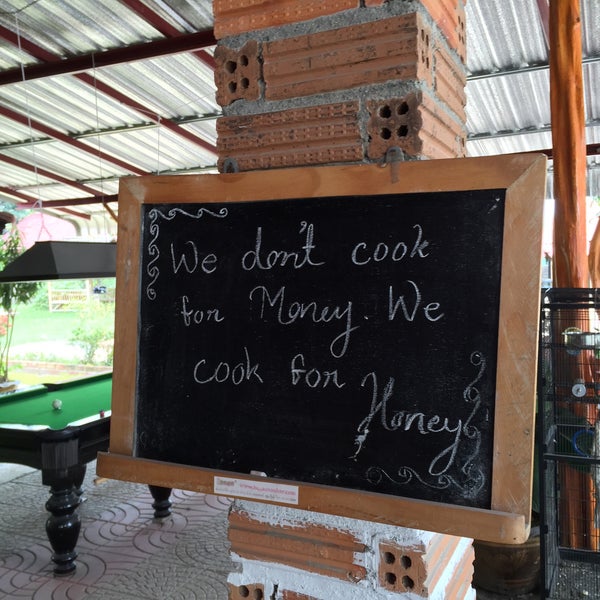 We don't cook
for Money. We
cook for
Honey